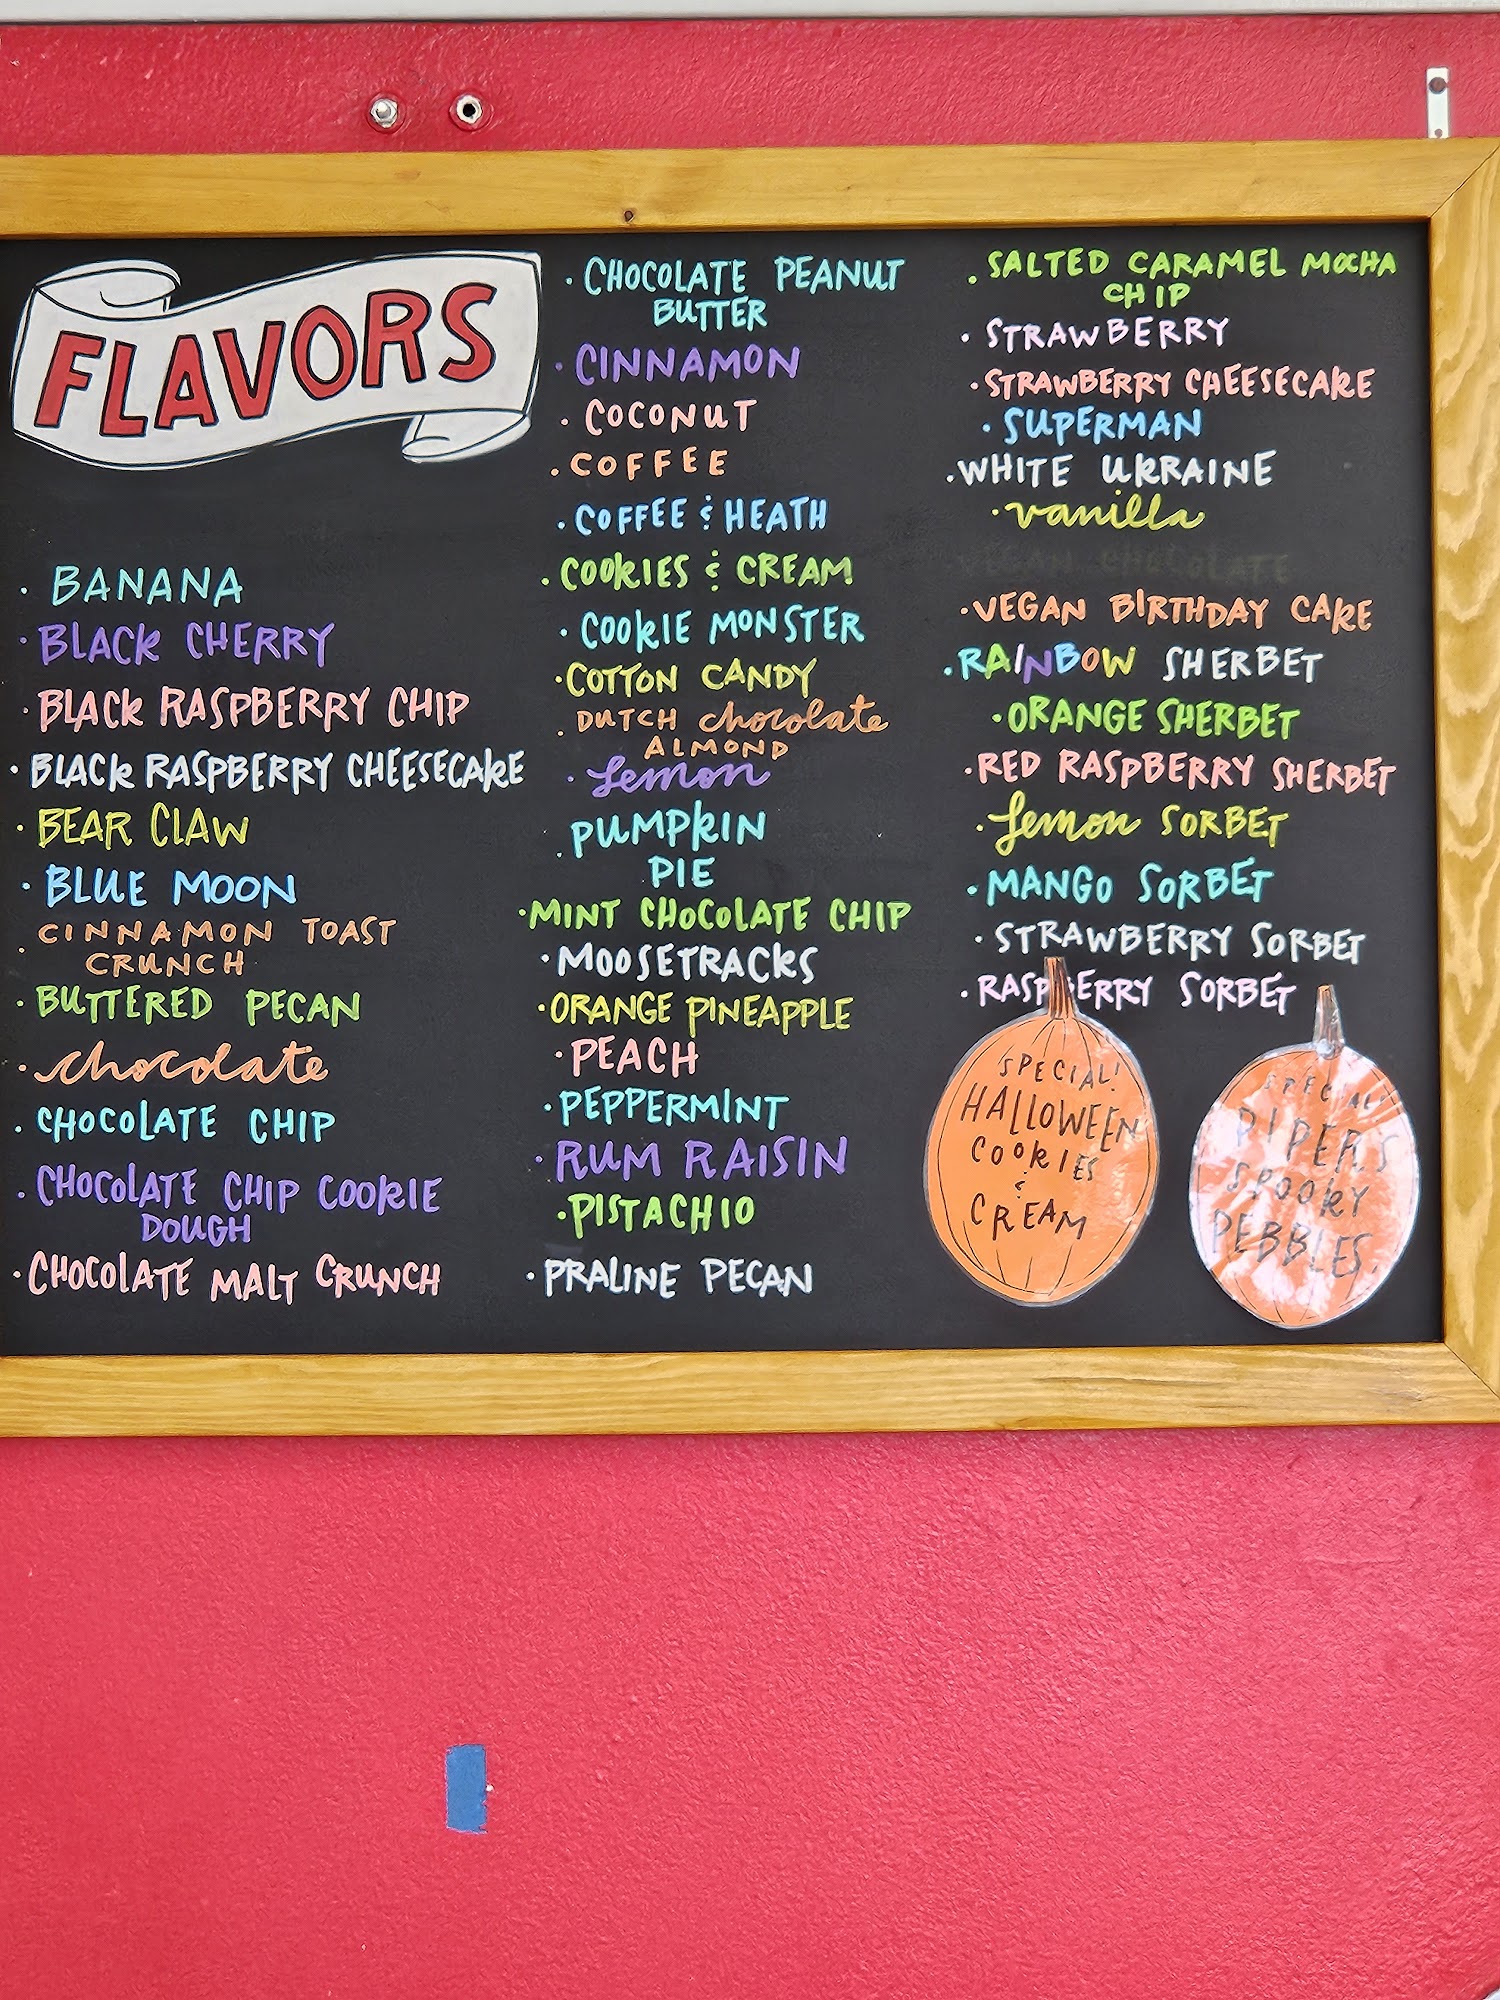 FLAVORS
· BANANA
· BLACK CHERRY
· BLACK RASPBERRY CHIP
· BLACK RASPBERRY CHEESECAKE
· BEAR CLAW
· BLUE MOON
· CINNAMON TOAST
CRUNCH
· BUTTERED PECAN
· chocolate
· CHOCOLATE CHIP
· CHOCOLATE CHIP COOKIE
DOUGH
· CHOCOLATE MALT CRUNCH
· CHOCOLATE PEANUT
BUTTER
· CINNAMON
· COCONUT
· COFFEE
· COFFEE & HEATH
· COOKIES & CREAM
· COOKIE MONSTER
· COTTON CANDY
· DUTCH chocolate
ALMOND
· Lemon
· PUMPKIN
PIE
· MINT CHOCOLATE CHIP
· MOOSETRACKS
· ORANGE PINEAPPLE
· PEACH
· PEPPERMINT
· RUM RAISIN
· PISTACHIO
· PRALINE PECAN
· SALTED CARAMEL MOCHA
CHIP
· STRAWBERRY
· STRAWBERRY CHEESECAKE
· SUPERMAN
· WHITE UKRAINE
· vanilla
VEGAN CHOCOLATE
· VEGAN BIRTHDAY CAKE
· RAINBOW SHERBET
· ORANGE SHERBET
· RED RASPBERRY SHERBET
· Lemon SORBET
· MANGO SORBET
· STRAWBERRY SORBET
· RASPBERRY SORBET
SPECIAL!
HALLOWEEN
COOKIES
&
CREAM
SPECIAL!
PIPER'S
SPOOKY
PEBBLES